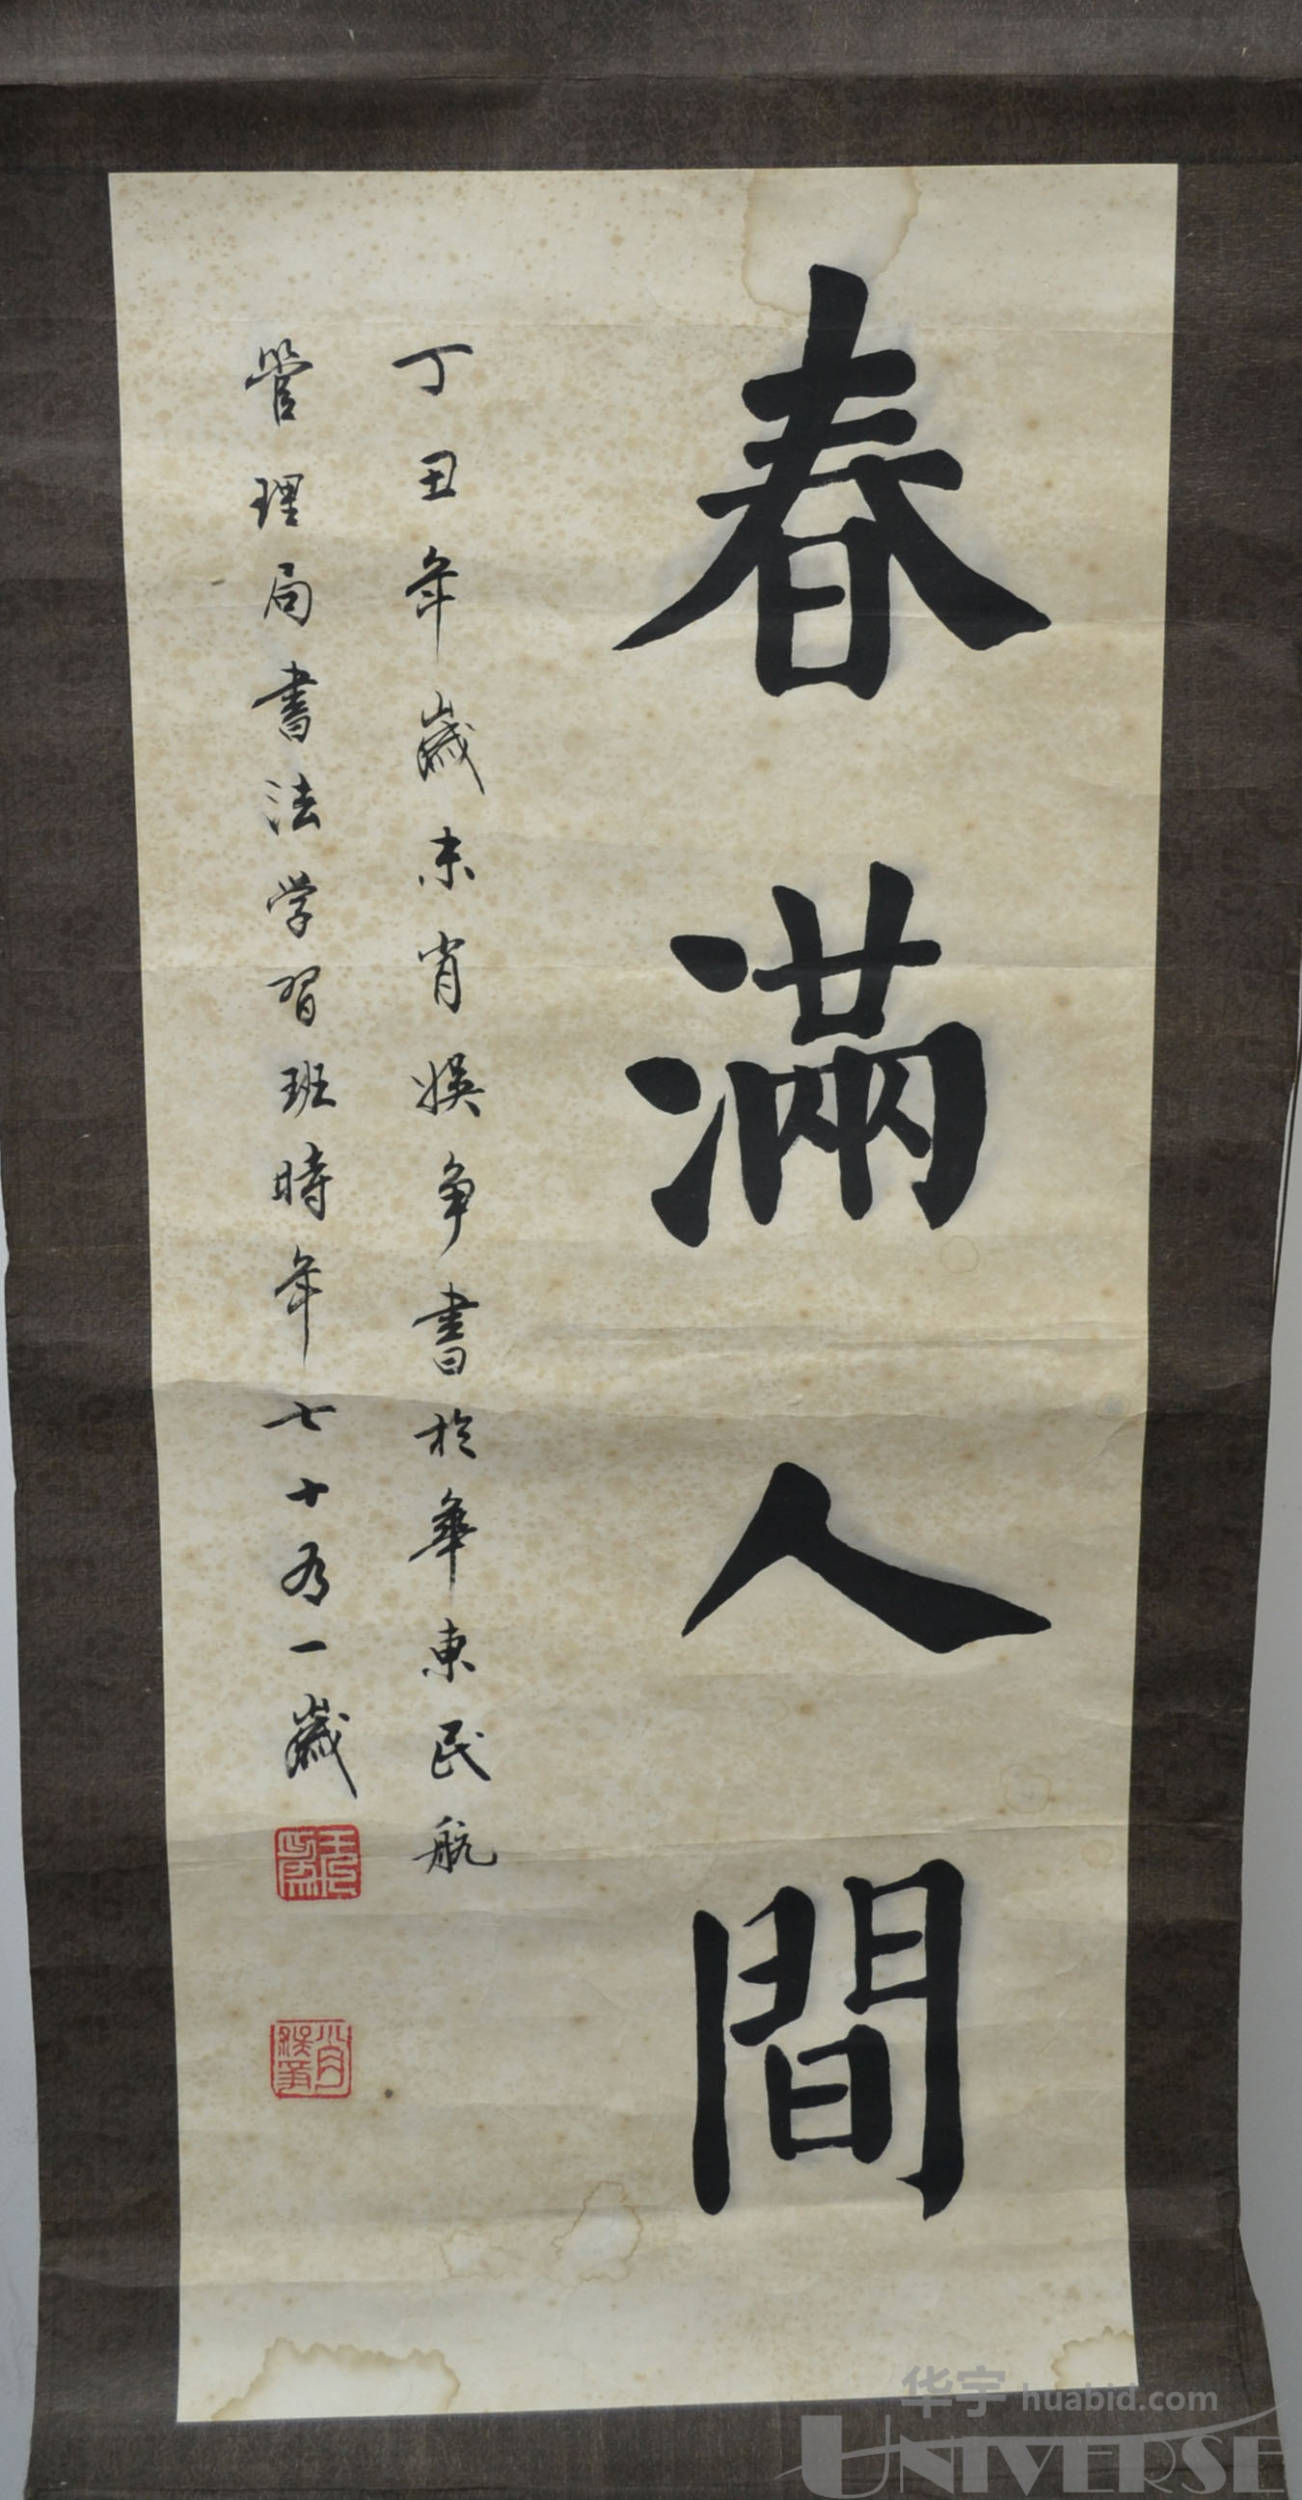 春滿人間
丁丑年歲末肖娛爭書於華東民航
管理局書法学習班時年七十有一歲
肖娛爭
华宇 huabid.com
UNIVERSE